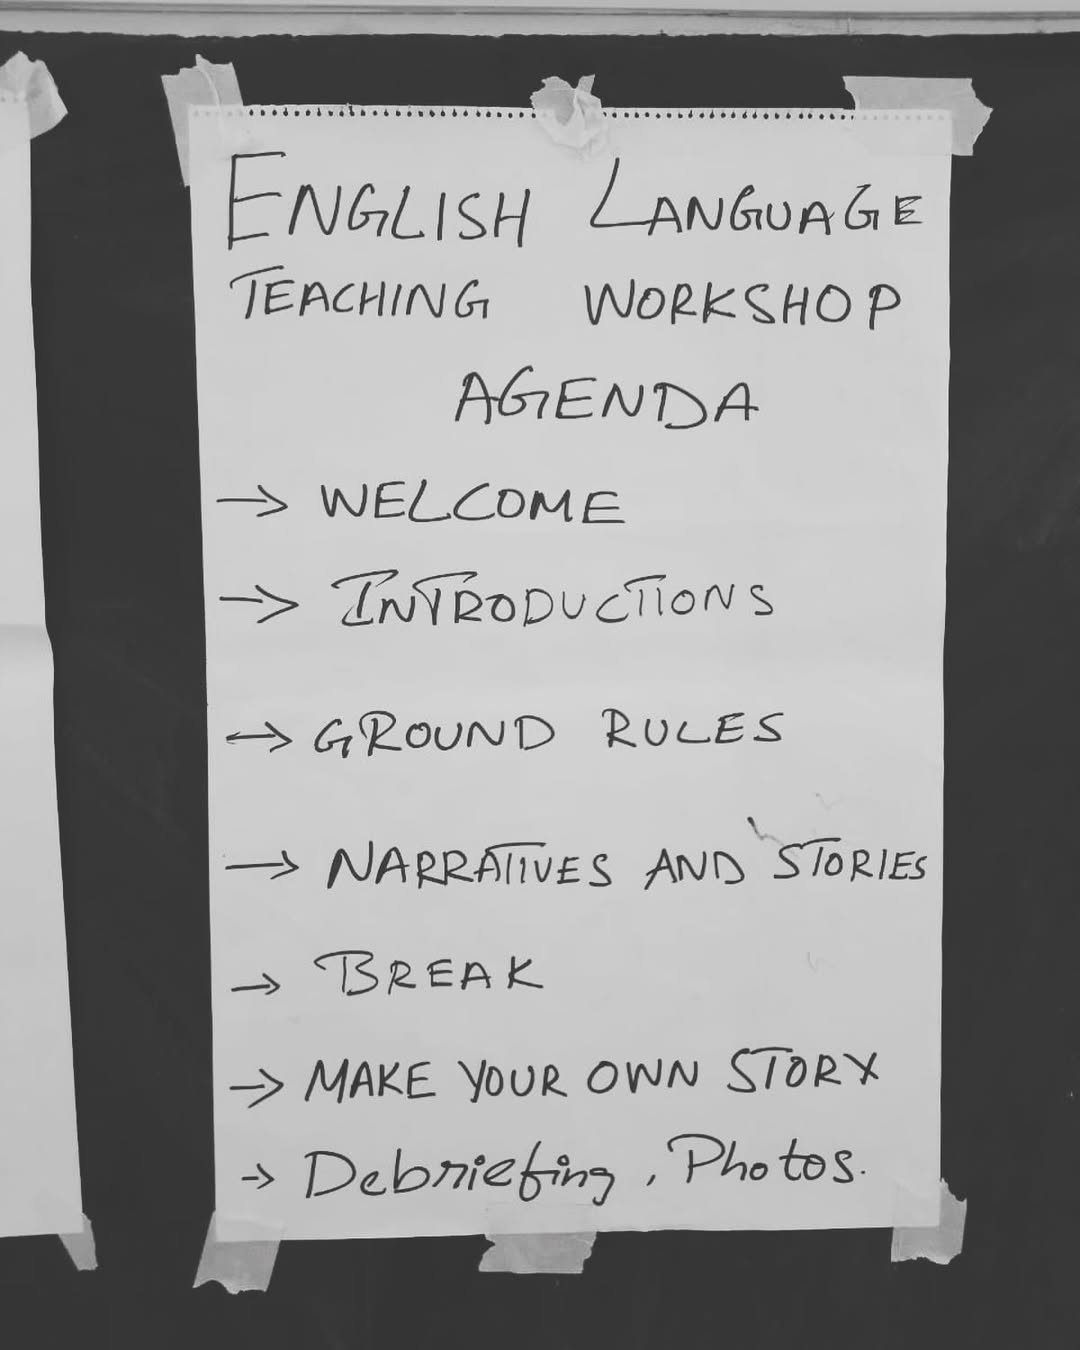 ENGLISH LANGUAGE
TEACHING WORKSHOP
AGENDA
→ WELCOME
→ INTRODUCTIONS
→ GROUND RULES
→ NARRATIVES AND STORIES
→ BREAK
→ MAKE YOUR OWN STORY
→ Debriefing, Photos.